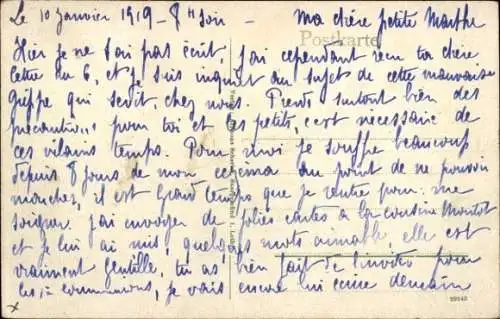 Le 10 Janvier 1919 - 8 h Soir - Ma chère petite Marthe
Postkarte
Hier je ne t'ai pas écrit, j'ai cependant reçu ta chère
lettre du 6, et je suis inquiet au sujet de cette mauvaise
grippe qui sévit chez nous. Prends surtout bien des
précautions pour toi et les petits, c'est nécessaire de
ces vilains temps. Pour moi je souffre beaucoup
depuis 8 jours de mon eczema au point de ne pouvoir
marcher, il est grand temps que je rentre pour me
soigner. J'ai envoyer de jolies cartes à la cousine
et je lui ai mis quelques mots aimable, elle est
vraiment gentille, tu as bien fait de l'inviter pour
les communions, je vais encore lui demain